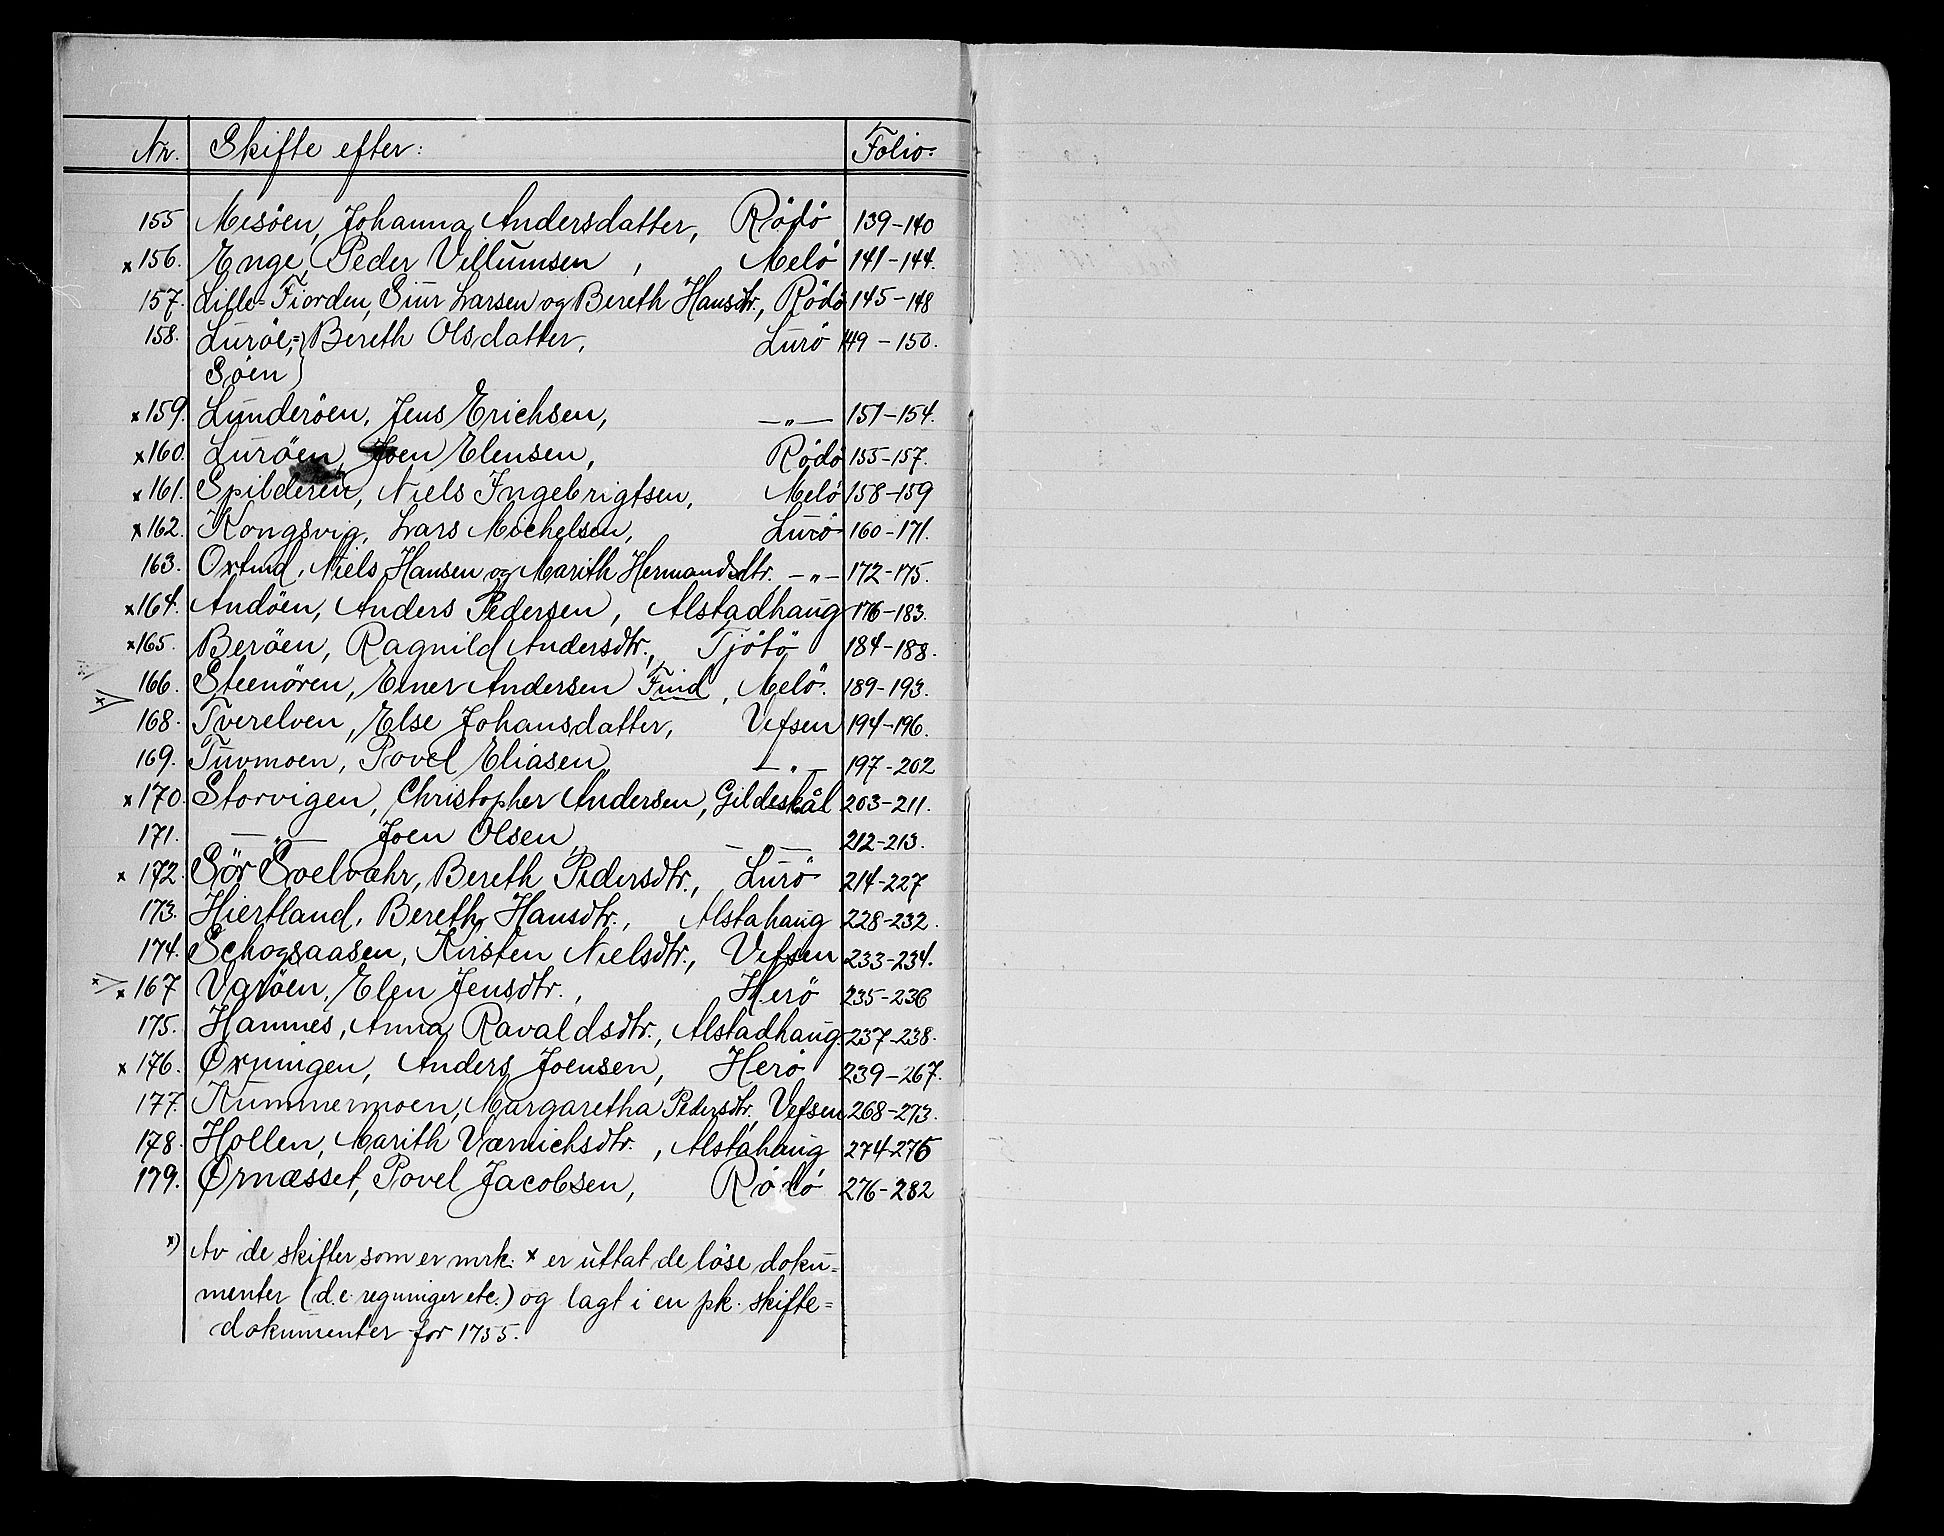 Nr. Skifte efter: Folio:
155 Mesöen, Johanna Andersdatter, Rödö 139-140
x156. Enge, Peder Villumsen, Melö 141-144.
157. Lille-Fiorden, Siur Larsen og Bereth Hansdtr., Rödö 145-148
158. Luröe,=} Bereth Olsdatter, Lurö 149-150.
Söen}
x159. Lunderöen, Jens Erichsen, —„— 151-154.
x160. Luröen, Joen Elensen, Rödö 155-157.
x161. Spilderen, Niels Ingebrigtsen, Melö 158-159
x162. Kongsvig, Lars Mochelsen, Lurö 160-171.
163. Ortind, Niels Hansen og Marith Hermandsdtr. —„— 172-175.
x164. Andöen, Anders Pedersen, Alstadhaug 176-183.
x165. Beröen, Ragnild Andersdtr., Tjötö 184-188.
166. Steenören, Elner Andersen Find, Melö. 189-193.
x)
168. Tverelven, Else Johansdatter, Vefsen 194-196.
169. Tuvmoen, Povel Eliasen —„— 197-202
x170. Storvigen, Christopher Andersen, Gildeskål 203-211.
171. —„— Joen Olsen, —„— 212-213.
x 172. Sör Soelvæhr, Bereth Pedersdtr., Lurö 214-227
173. Hiertland, Bereth Hansdtr., Alstahaug 228-232.
174. Schogsaasen, Kirsten Nielsdtr., Vefsen 233-234.
x) x 167 Varöen, Elen Jensdtr., Herö 235-236
175. Hamnes, Anna Ravaldsdtr., Alstadhaug. 237-238.
x 176. Ørningen, Anders Joensen, Herö 239-267.
177. Kummermoen, Margaretha Pedersdtr., Vefsen 268-273.
178. Hollen, Marith Værnichsdtr., Alstahaug 274-275
179. Ørnæsset, Povel Jacobsen, Rödö 276-282
x) Av de skifter som er mrk. x er uttat de löse doku=
menter (d.e. regninger etc.) og lagt i en pk. skifte=
dokumenter for 1755.